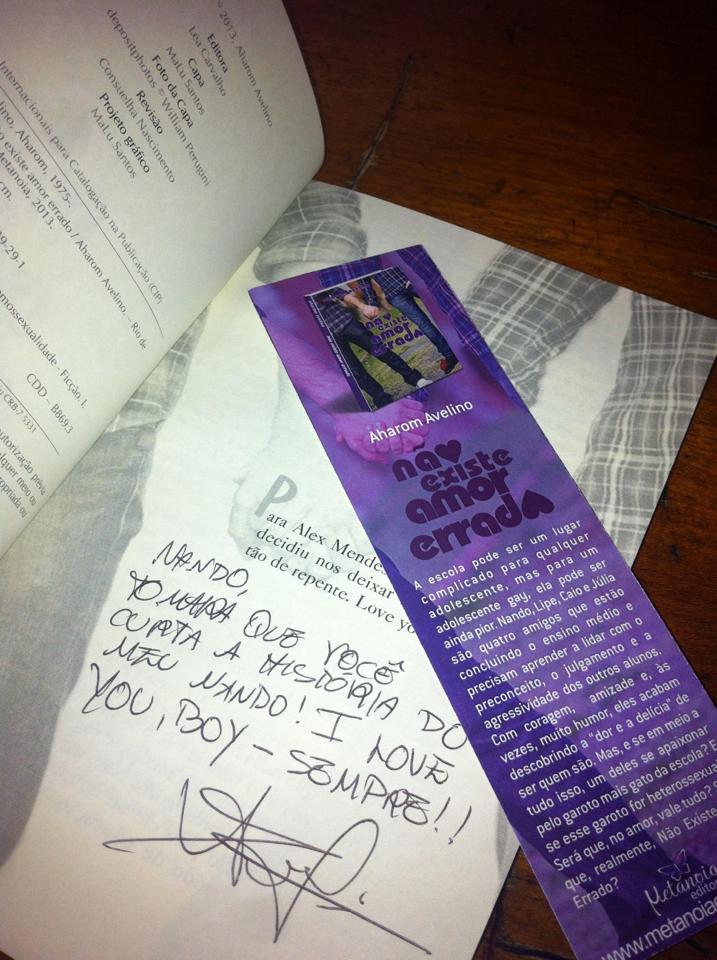 © 2013, Aharom Avelino
Editora
Léa Carvalho
Capa
MaLu Santos
Foto da Capa
depositphotos © William Perugini
Revisão
Consuelha Nascimento
Projeto gráfico
MaLu Santos
Internacionais para Catalogação na Publicação (CIP)
Aharom, 1975-.
existe amor errado / Aharom Avelino. – Rio de
Metanoia, 2013.
cm.
9-29-1
Ficção. I.
CDD – B869.3
CRB-7 5331
Para Alex Mendes
decidiu nos deixar
tão de repente. Love yo
NANDO,
TOMARA QUE VOCÊ
CURTA A HISTÓRIA DO
MEU NANDO! I LOVE
YOU, BOY – SEMPRE!!
não
existe
amor
errado
Aharom Avelino
não
existe
amor
errado
A escola pode ser um lugar
complicado para qualquer
adolescente, mas para um
adolescente gay, ela pode ser
ainda pior. Nando, Lipe, Caio e Júlia
são quatro amigos que estão
concluindo o ensino médio e
precisam aprender a lidar com o
preconceito, o julgamento e a
agressividade dos outros alunos.
Com coragem, amizade e, às
vezes, muito humor, eles acabam
descobrindo a "dor e a delícia" de
ser quem são. Mas, e se em meio a
tudo isso, um deles se apaixonar
pelo garoto mais gato da escola? E
se esse garoto for heterossexual?
Será que, no amor, vale tudo? Será
que, realmente, Não Existe
Errado?
Metanoia
editora
www.metanoiae